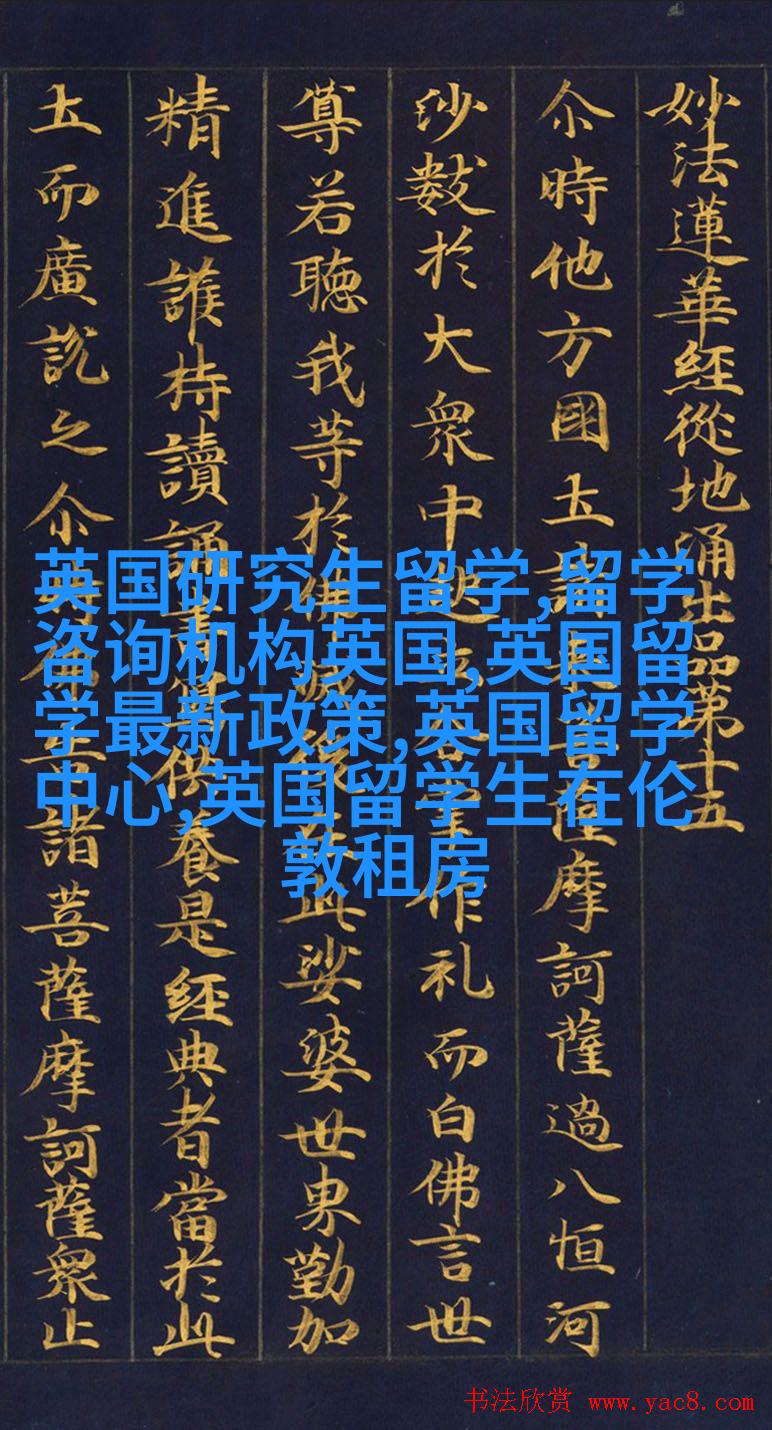 妙法蓮華経從地涌出品第十五
尒時他方國土諸菩薩摩訶薩過八恒河
沙數於大衆中作礼而白佛言世
尊若聽我等於佛滅後此娑婆世界勤加
精進護持讀誦供養是経典者當於此
土而廣說之尒時諸菩薩摩訶薩衆止
英国研究生留学,留学
咨询机构英国,英国留
学最新政策,英国留学
中心,英国留学生在伦
敦租房
书法欣赏 www.yac8.com